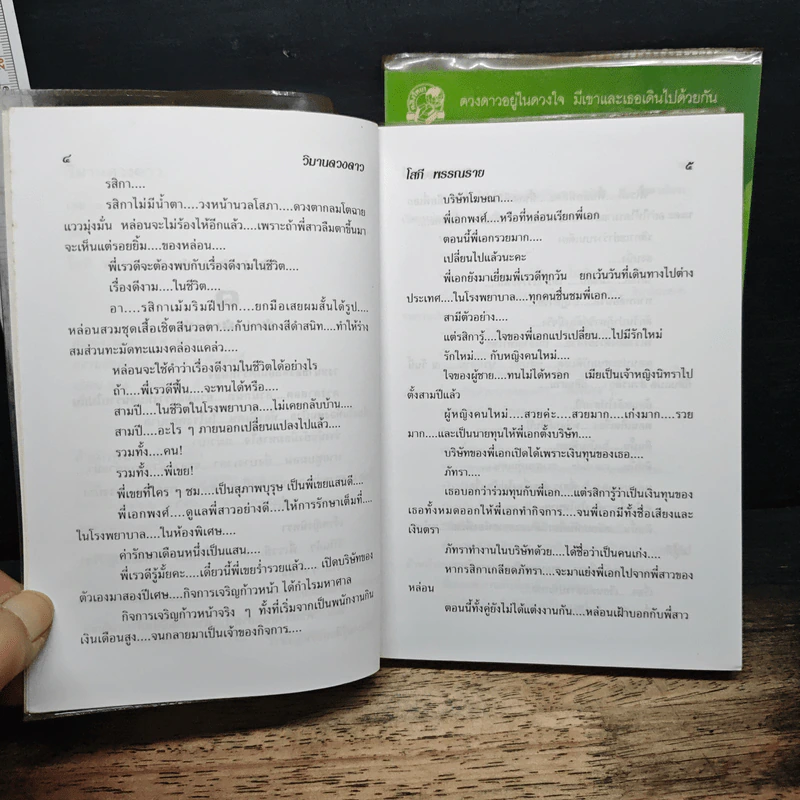 ดวงดาวอยู่ในดวงใจ มีเขาและเธอเดินไปด้วยกัน
๔ วิมานดวงดาว
รสิกา....
รสิกาไม่มีน้ำตา....วงหน้านวลโสภา....ดวงตากลมโตฉาย
แววมุ่งมั่น หล่อนจะไม่ร้องไห้อีกแล้ว....เพราะถ้าพี่สาวลืมตาขึ้นมา
จะเห็นแต่รอยยิ้ม....ของหล่อน....
พี่เรวดีจะต้องพบกับเรื่องดีงามในชีวิต....
เรื่องดีงาม....ในชีวิต....
อา....รสิกาเม้มริมฝีปาก....ยกมือเสยผมสั้นได้รูป....
หล่อนสวมชุดเสื้อเชิ้ตสีนวลตา....กับกางเกงสีดำสนิท....ทำให้ร่าง
สมส่วนทะมัดทะแมงคล่องแคล่ว....
หล่อนจะใช้คำว่าเรื่องดีงามในชีวิตได้อย่างไร
ถ้า....พี่เรวดีฟื้น....จะทนได้หรือ....
สามปี....ในชีวิตในโรงพยาบาล....ไม่เคยกลับบ้าน....
สามปี....อะไร ๆ ภายนอกเปลี่ยนแปลงไปแล้ว....
รวมทั้ง....คน!
รวมทั้ง....พี่เขย!
พี่เขยที่ใคร ๆ ชม....เป็นสุภาพบุรุษ เป็นพี่เขยแสนดี....
พี่เอกพงศ์....ดูแลพี่สาวอย่างดี....ให้การรักษาเต็มที่....
ในโรงพยาบาล....ในห้องพิเศษ....
ค่ารักษาเดือนหนึ่งเป็นแสน....
พี่เรวดีรู้มั้ยคะ....เดี๋ยวนี้พี่เขยร่ำรวยแล้ว.... เปิดบริษัทของ
ตัวเองมาสองปีเศษ....กิจการเจริญก้าวหน้า ได้กำไรมหาศาล
กิจการเจริญก้าวหน้าจริง ๆ ทั้งที่เริ่มจากเป็นพนักงานกิน
เงินเดือนสูง....จนกลายมาเป็นเจ้าของกิจการ....
โสภี พรรณราย ๕
บริษัทโฆษณา....
พี่เอกพงศ์....หรือที่หล่อนเรียกพี่เอก
ตอนนี้พี่เอกรวยมาก....
เปลี่ยนไปแล้วนะคะ
พี่เอกยังมาเยี่ยมพี่เรวดีทุกวัน ยกเว้นวันที่เดินทางไปต่าง
ประเทศ....ในโรงพยาบาล....ทุกคนชื่นชมพี่เอก....
สามีตัวอย่าง....
แต่รสิการู้....ใจของพี่เอกแปรเปลี่ยน....ไปมีรักใหม่
รักใหม่.... กับหญิงคนใหม่....
ใจของผู้ชาย....ทนไม่ได้หรอก เมียเป็นเจ้าหญิงนิทราไป
ตั้งสามปีแล้ว
ผู้หญิงคนใหม่....สวยค่ะ....สวยมาก....เก่งมาก....รวย
มาก....และเป็นนายทุนให้พี่เอกตั้งบริษัท....
บริษัทของพี่เอกเปิดได้เพราะเงินทุนของเธอ....
ภัทรา....
เธอบอกว่าร่วมทุนกับพี่เอก....แต่รสิการู้ว่าเป็นเงินทุนของ
เธอทั้งหมดออกให้พี่เอกทำกิจการ....จนพี่เอกมีทั้งชื่อเสียงและ
เงินตรา
ภัทราทำงานในบริษัทด้วย....ได้ชื่อว่าเป็นคนเก่ง....
หากรสิกาเกลียดภัทรา....จะมาแย่งพี่เอกไปจากพี่สาวของ
หล่อน
ตอนนี้ทั้งคู่ยังไม่ได้แต่งงานกัน....หล่อนเฝ้าบอกกับพี่สาว